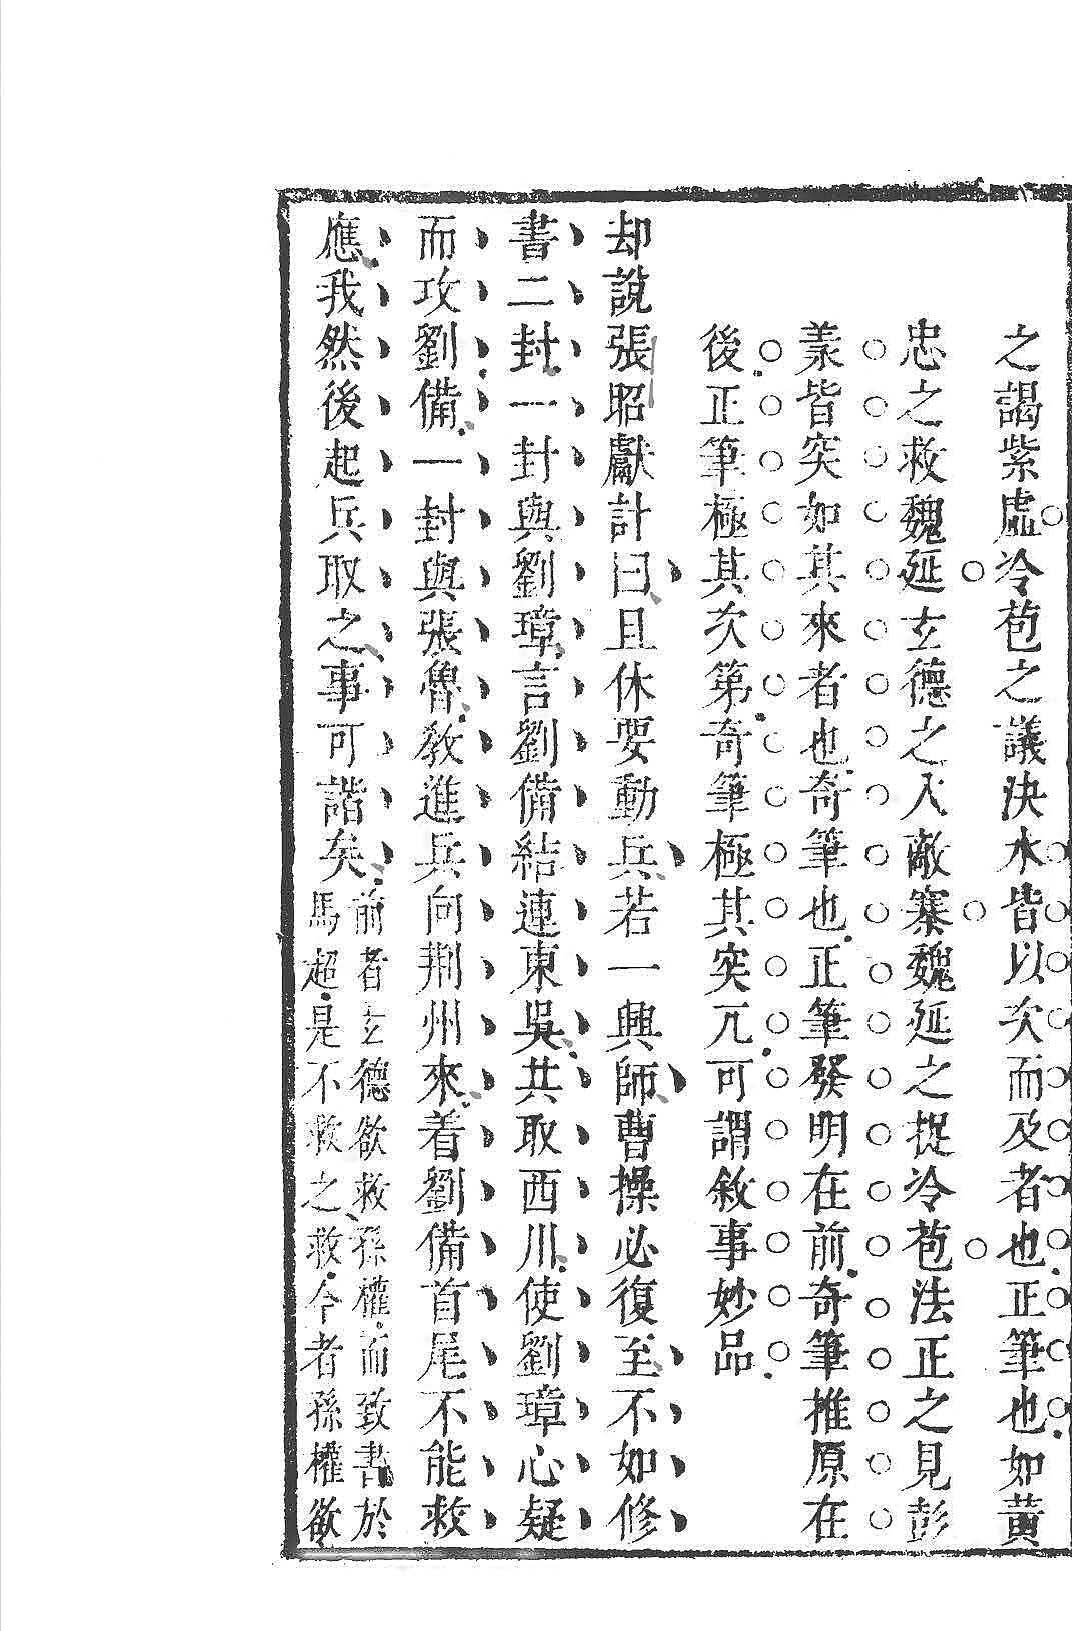 之謁紫虛冷苞之議決水皆以次而及者也正筆也如黃
忠之救魏延玄德之入敵寨魏延之捉冷苞法正之見彭
羕皆突如其來者也奇筆也正筆發明在前奇筆推原在
後正筆極其次第奇筆極其突兀可謂敘事妙品
却說張昭獻計曰且休要動兵若一興師曹操必復至不如修
書二封一封與劉璋言劉備結連東吳共取西川使劉璋心疑
而攻劉備一封與張魯教進兵向荆州來着劉備首尾不能救
應我然後起兵取之事可諧矣
前者玄德欲救孫權而致書於
馬超是不救之救今者孫權欲